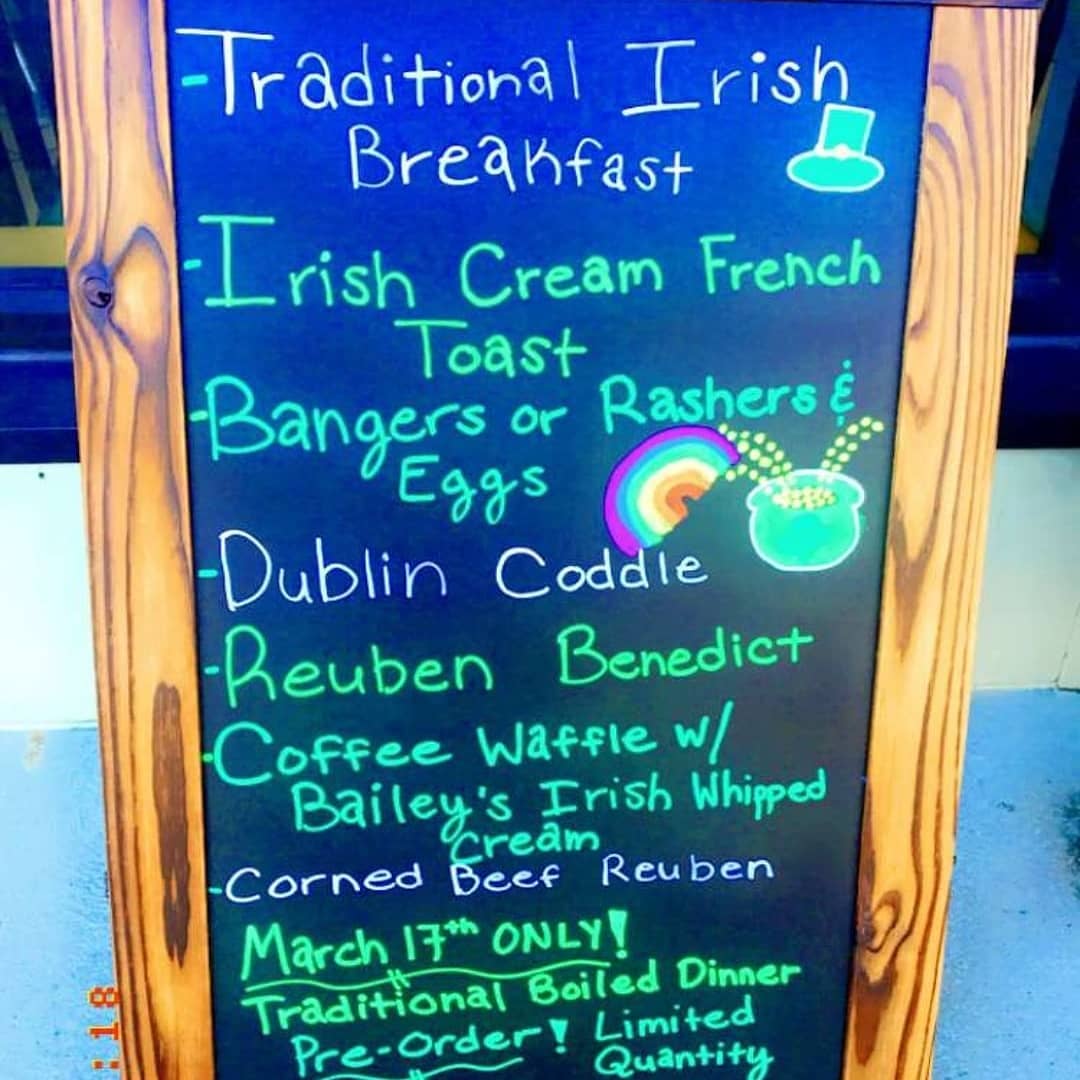 -Traditional Irish
Breakfast
-Irish Cream French
Toast
-Bangers or Rashers &
Eggs
-Dublin Coddle
-Reuben Benedict
-Coffee Waffle w/
Bailey's Irish Whipped
Cream
-Corned Beef Reuben
March 17th ONLY!
Traditional Boiled Dinner
Pre-Order! Limited
Quantity